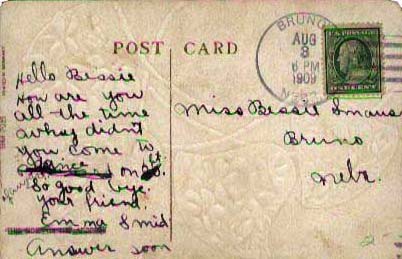 POST CARD
BRUNO
AUG
3
6 PM
1909
NEBR
U.S. POSTAGE
ONE CENT
Hello Bessie
How are you
all the time
why didn't
you come to
on
So good bye.
your friend
Emma Smid.
Answer soon
Miss Bessie
Bruno
Nebr.